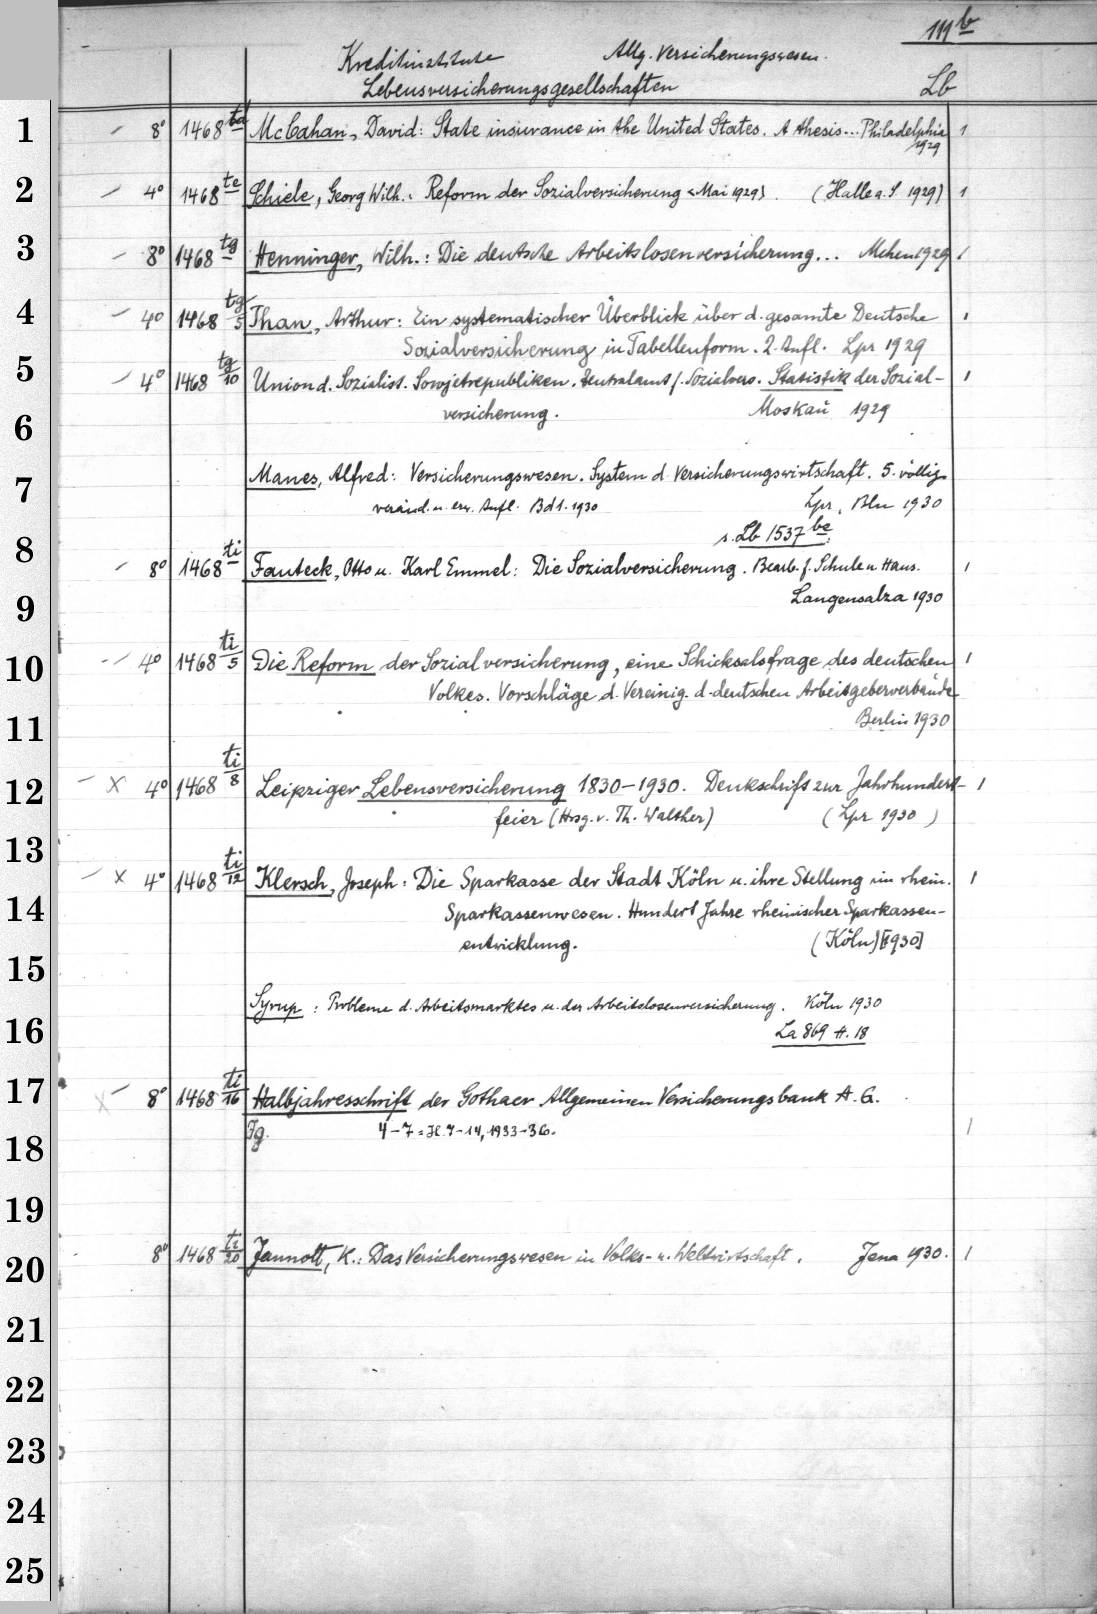 111b
Kreditinstitute Allg. Versicherungswesen.
Lebensversicherungsgesellschaften Lb
1 - 8° 1468 td McCahan, David: State insurance in the United States. A thesis... Philadelphia 1
1929
2 - 4° 1468 te Schiele, Georg Wilh.: Reform der Sozialversicherung <Mai 1929>. (Halle a. S 1929) 1
3 - 8° 1468 tg Henninger, Wilh.: Die deutsche Arbeitslosenversicherung... Mchen 1929 1
4 - 4° 1468 tg/5 Than, Arthur: Ein systematischer Überblick über d. gesamte Deutsche 1
Sozialversicherung in Tabellenform. 2. Aufl. Lpz 1929
5 - 4° 1468 tg/10 Union d. Sozialist. Sowjetrepubliken. Zentralamt f. Sozialvers. Statistik der Sozial- 1
6 versicherung. Moskau 1929
7 Manes, Alfred: Versicherungswesen. System d. Versicherungswirtschaft. 5. völlig
veränd. u. erw. Aufl. Bd 1. 1930 Lpz, Bln 1930
s. Lb 1537 be
8 - 8° 1468 ti Fauteck, Otto u. Karl Emmel: Die Sozialversicherung. Bearb. f. Schule u. Haus. 1
9 Langensalza 1930
10 - 4° 1468 ti/5 Die Reform der Sozialversicherung, eine Schicksalsfrage des deutschen 1
Volkes. Vorschläge d. Vereinig. d. deutschen Arbeitgeberverbände
11 Berlin 1930
12 - x 4° 1468 ti/8 Leipziger Lebensversicherung 1830-1930. Denkschrift zur Jahrhundert- 1
feier (Hrsg. v. Th. Walther) (Lpz 1930)
13
14 - x 4° 1468 ti/12 Klersch, Joseph: Die Sparkasse der Stadt Köln u. ihre Stellung im rhein. 1
Sparkassenwesen. Hundert Jahre rheinischer Sparkassen-
entwicklung. (Köln) [1930]
15
16 Syrup: Probleme d. Arbeitsmarktes u. der Arbeitslosenversicherung. Köln 1930
La 869 H. 18
17 x - 8° 1468 ti/16 Halbjahresschrift der Gothaer Allgemeinen Versicherungsbank A. G.
18 Jg. 4-7 = H. 7-14, 1933-36. 1
19
20 8° 1468 ti/20 Jannott, K.: Das Versicherungswesen in Volks- u. Weltwirtschaft. Jena 1930. 1
21
22
23
24
25